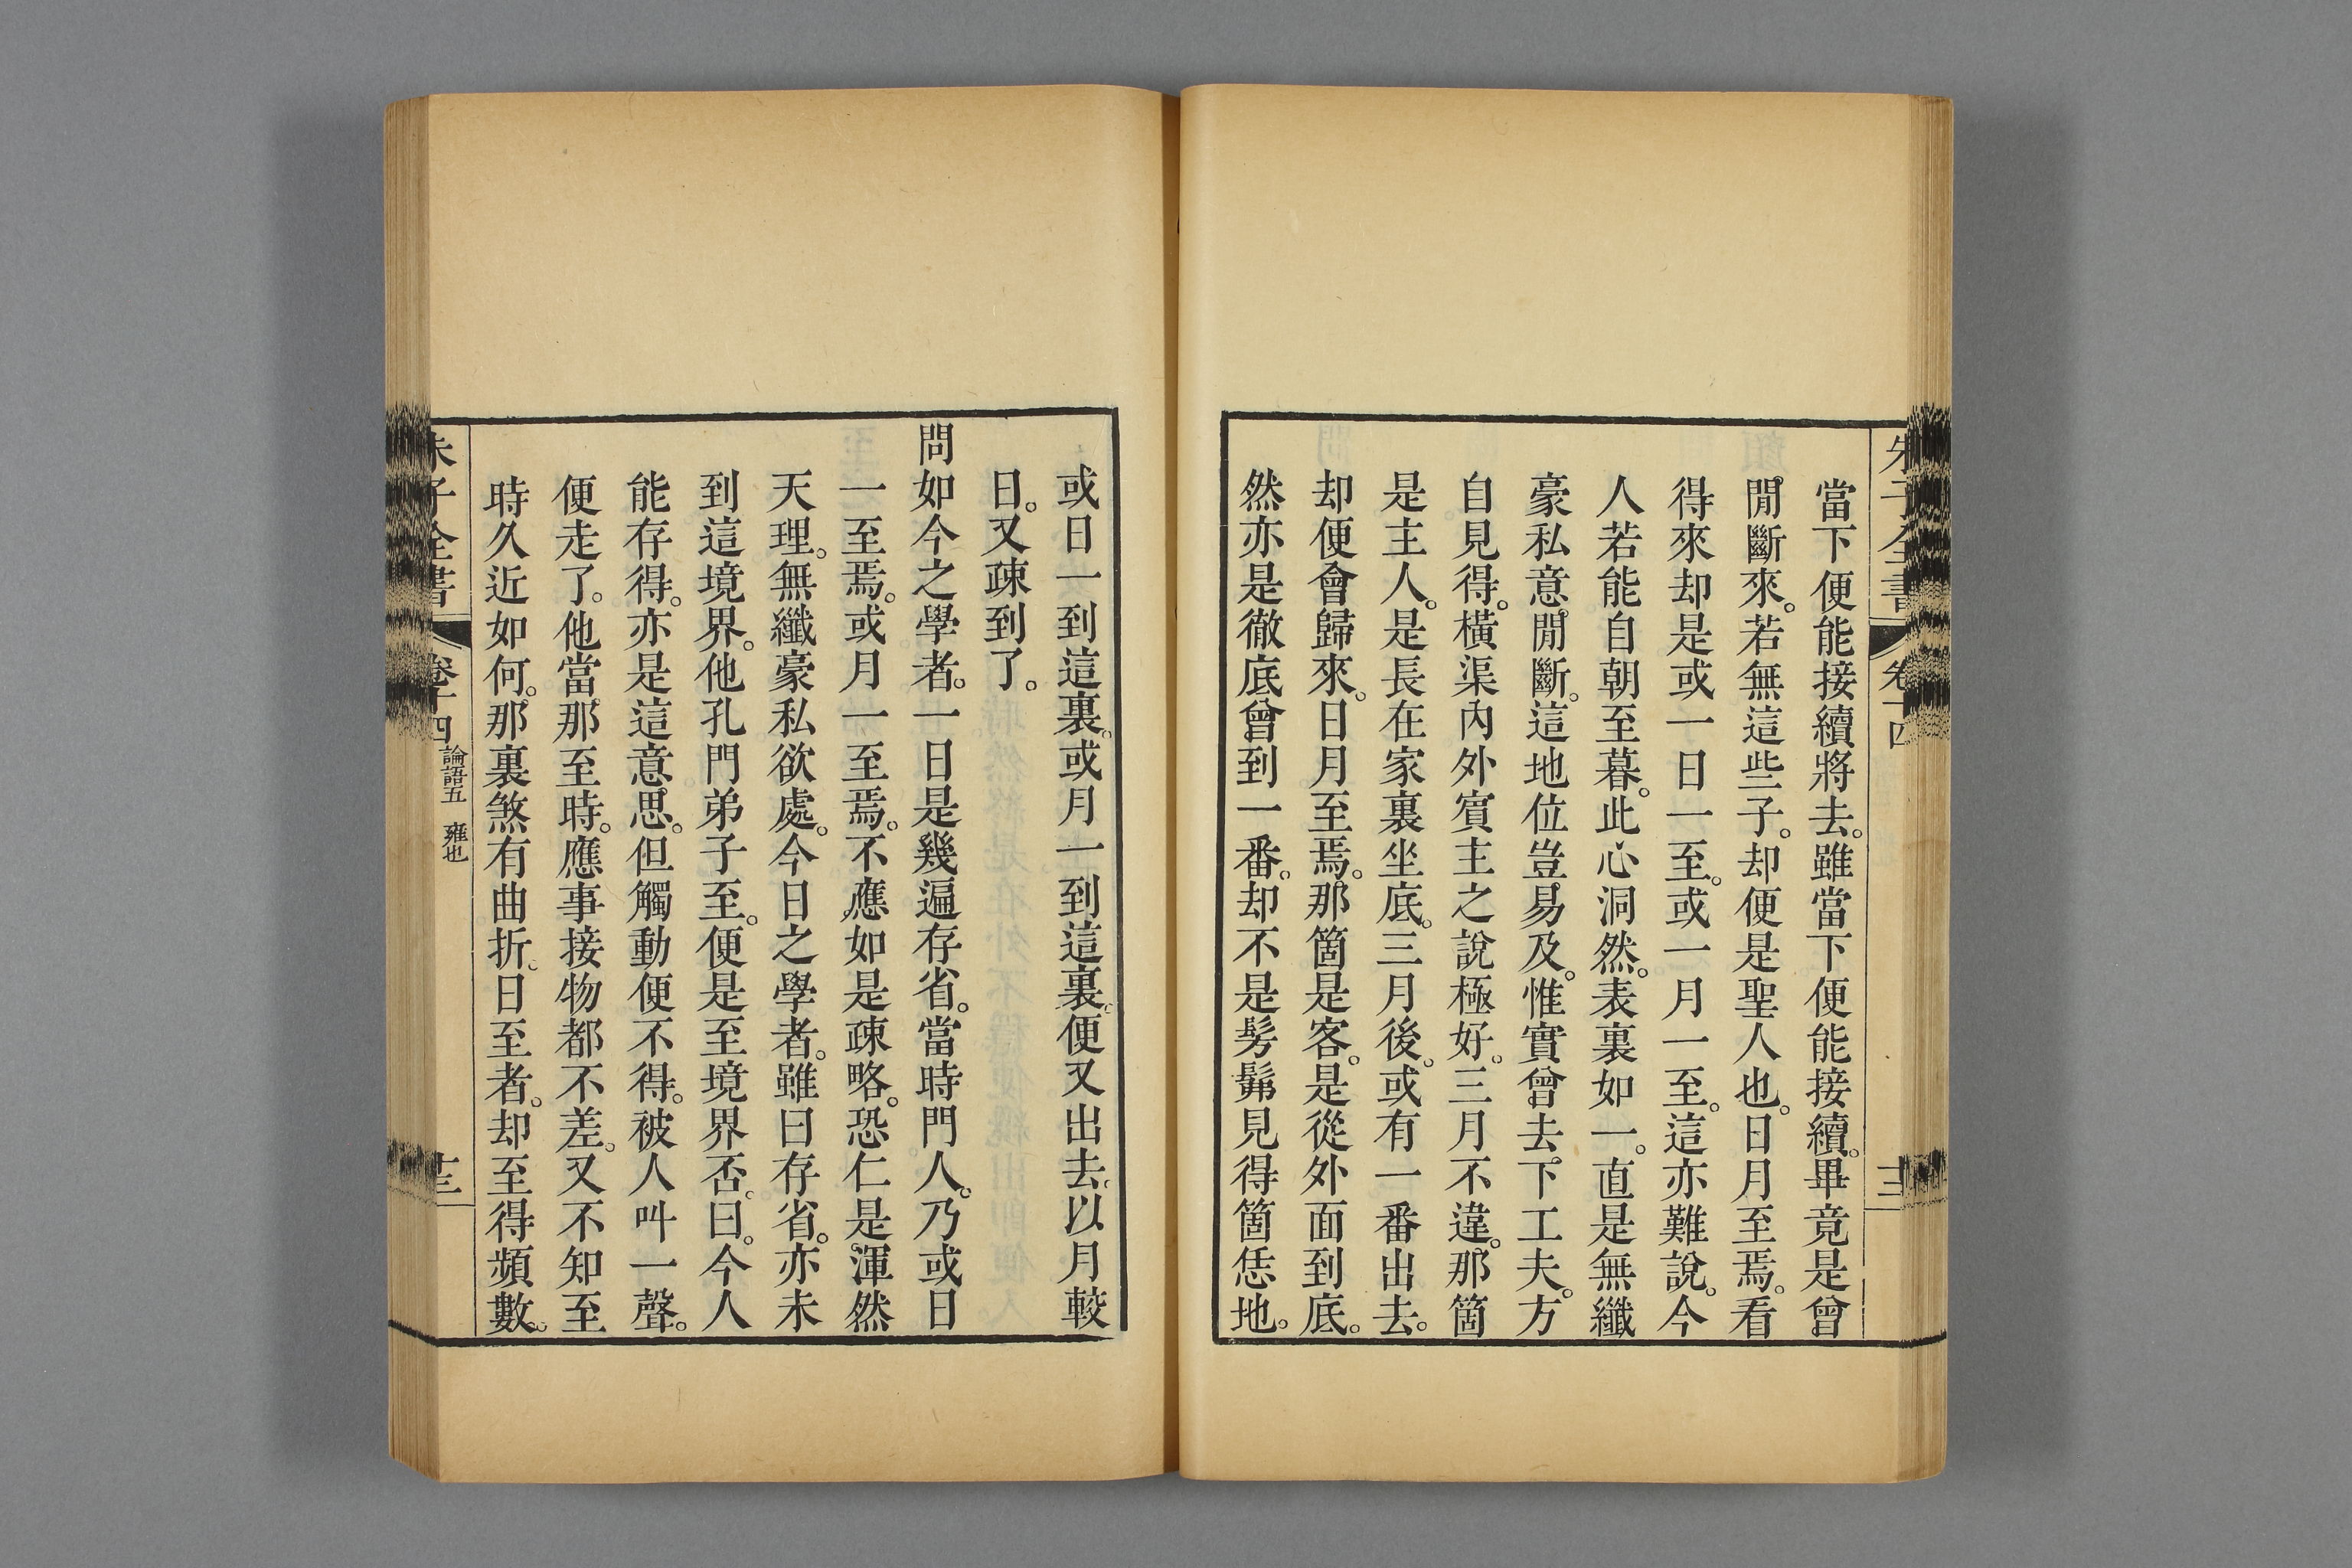 朱子全書 卷十四
當下便能接續將去。雖當下便能接續。畢竟是曾
閒斷來。若無這些子。却便是聖人也。日月至焉。看
得來却是或一日一至。或一月一至。這亦難說。今
人若能自朝至暮。此心洞然。表裏如一。直是無纖
豪私意閒斷。這地位豈易及。惟實曾去下工夫。方
自見得。橫渠內外賓主之說極好。三月不違。那箇
是主人。是長在家裏坐底。三月後。或有一番出去。
却便會歸來。日月至焉。那箇是客。是從外面到底。
然亦是徹底曾到一番。却不是髣髴見得箇恁地。
或日一到這裏。或月一到這裏。便又出去。以月較
日。又疎到了。
問如今之學者。一日是幾遍存省。當時門人。乃或日
一至焉。或月一至焉。不應如是疎略。恐仁是渾然
天理。無纖豪私欲處。今日之學者。雖曰存省。亦未
到這境界。他孔門弟子至。便是至境界否。曰。今人
能存得。亦是這意思。但觸動便不得。被人叫一聲。
便走了。他當那至時。應事接物都不差。又不知至
時久近如何。那裏煞有曲折。日至者。却至得頻數。
朱子全書 卷十四 論語五 雍也